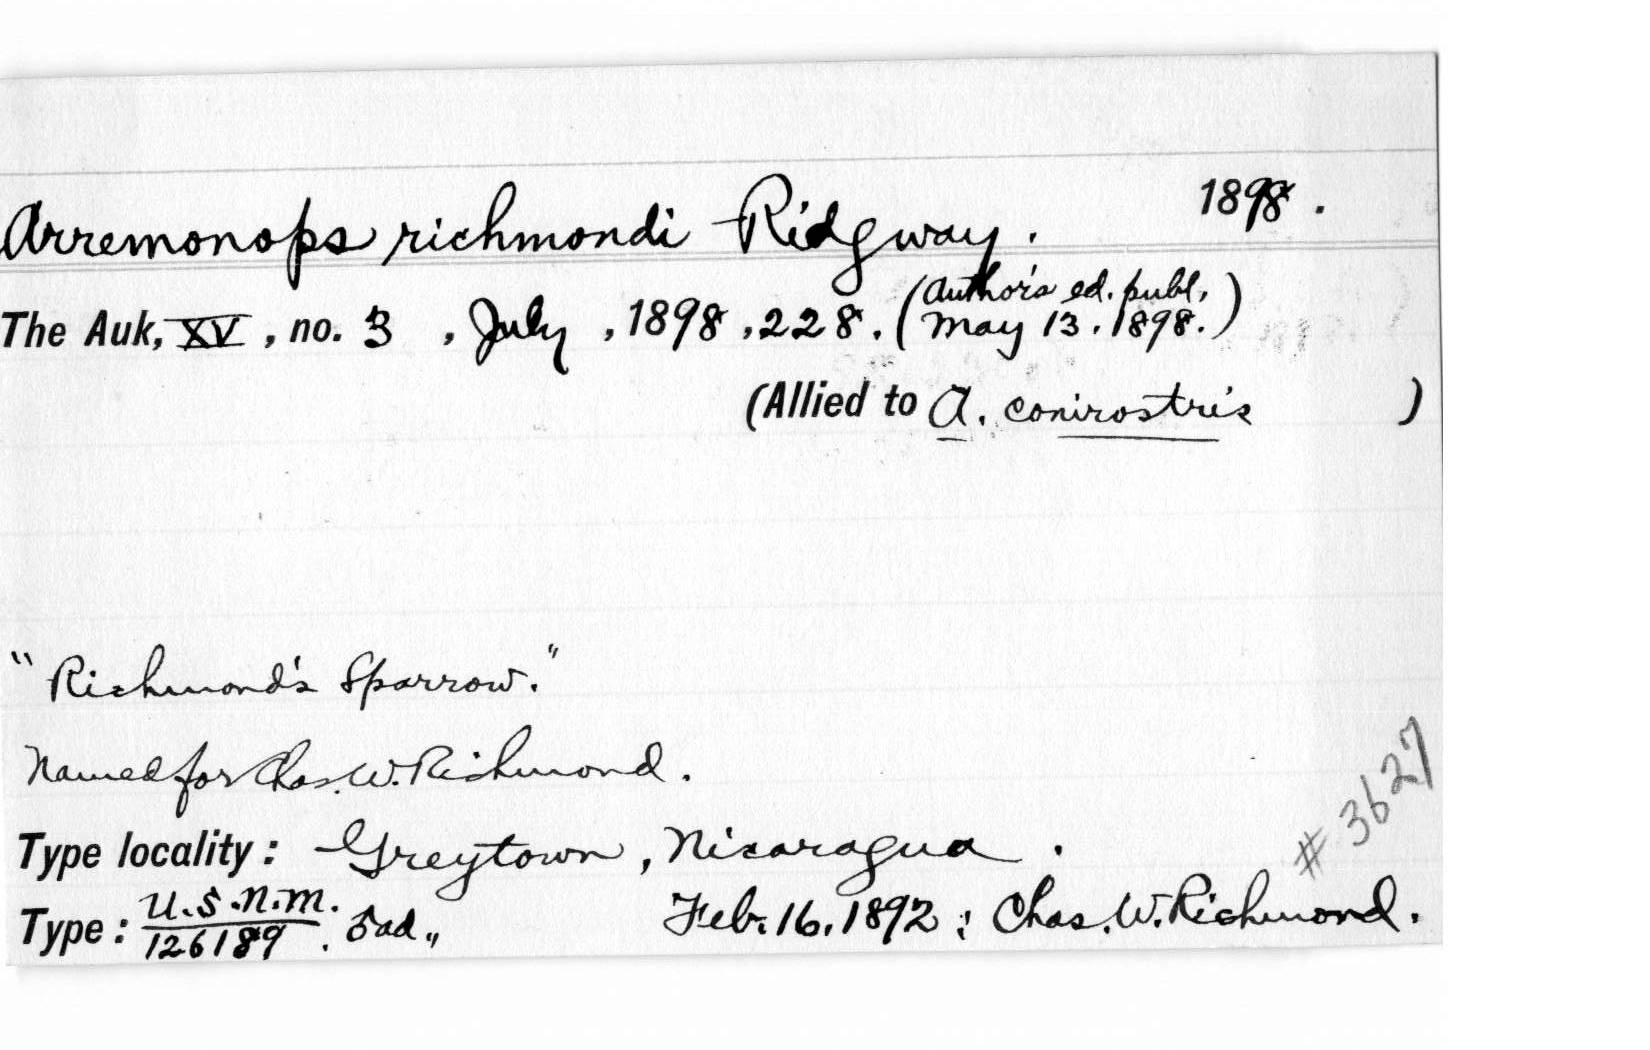 1898.
Arremonops richmondi Ridgway.
The Auk, XV, no. 3, July, 1898, 228. (Author's ed. publ,
May 13. 1898.)
(Allied to A. conirostris )
"Richmond's Sparrow."
Named for Chas. W. Richmond.
# 3627
Type locality: Greytown, Nicaragua.
Type: U.S.N.M. 126189. ♂ad., Feb. 16, 1892; Chas. W. Richmond.